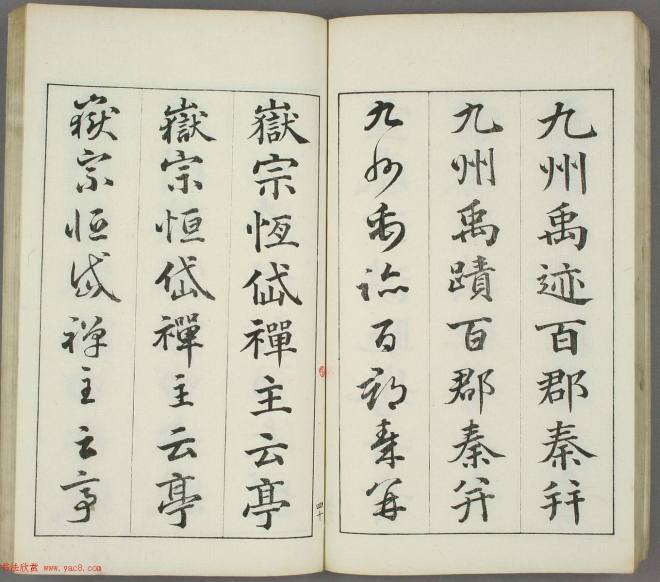 九州禹迹百郡秦并
九州禹蹟百郡秦并
九州禹跡百郡秦并
嶽宗恆岱禪主云亭
嶽宗恒岱禪主云亭
嶽宗恒岱禅主云亭
四十
书法欣赏 www.yac8.com